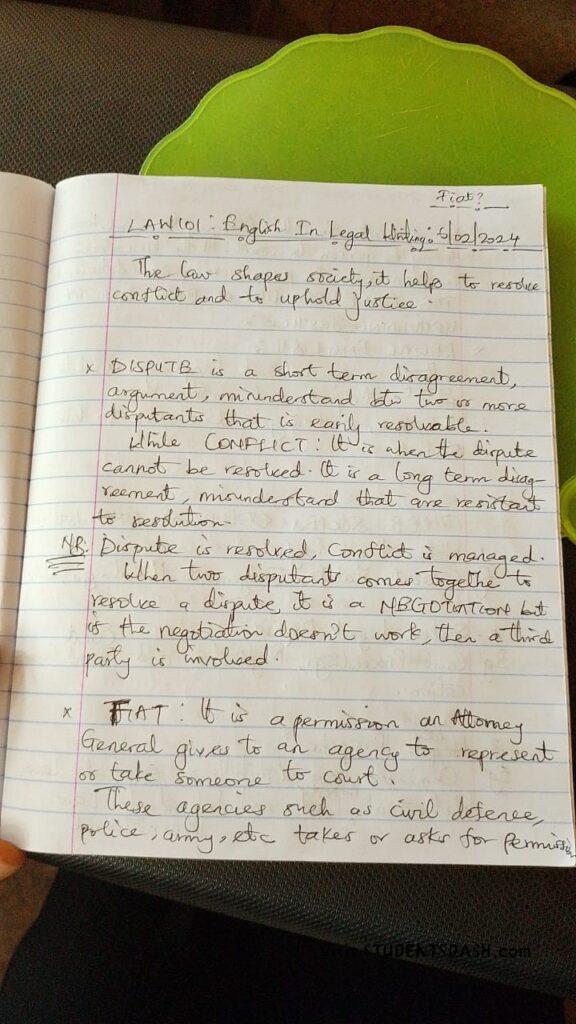 Fiat?
LAW101: English In Legal Writing: 6/02/2024
The law shapes society, it helps to resolve
conflict and to uphold justice.
x DISPUTE is a short term disagreement,
argument, misunderstand btw two or more
disputants that is easily resolvable.
While CONFLICT: It is when the dispute
cannot be resolved. It is a long term disag-
reement, misunderstand that are resistant
to resolution.
NB: Dispute is resolved, Conflict is managed.
When two disputants comes togethe to
resolve a dispute, it is a NEGOTIATION but
if the negotiation doesn't work, then a third
party is involved.
x FIAT: It is a permission an Attorney
General gives to an agency to represent
or take someone to court.
These agencies such as civil defence,
police, army, etc takes or asks for permission
STUDENTSDASH.com